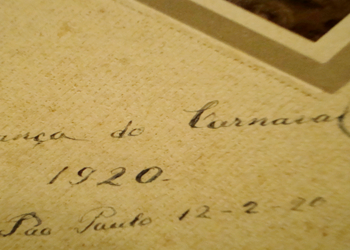 ança do Carnaval
1920-
São Paulo 12-2-20